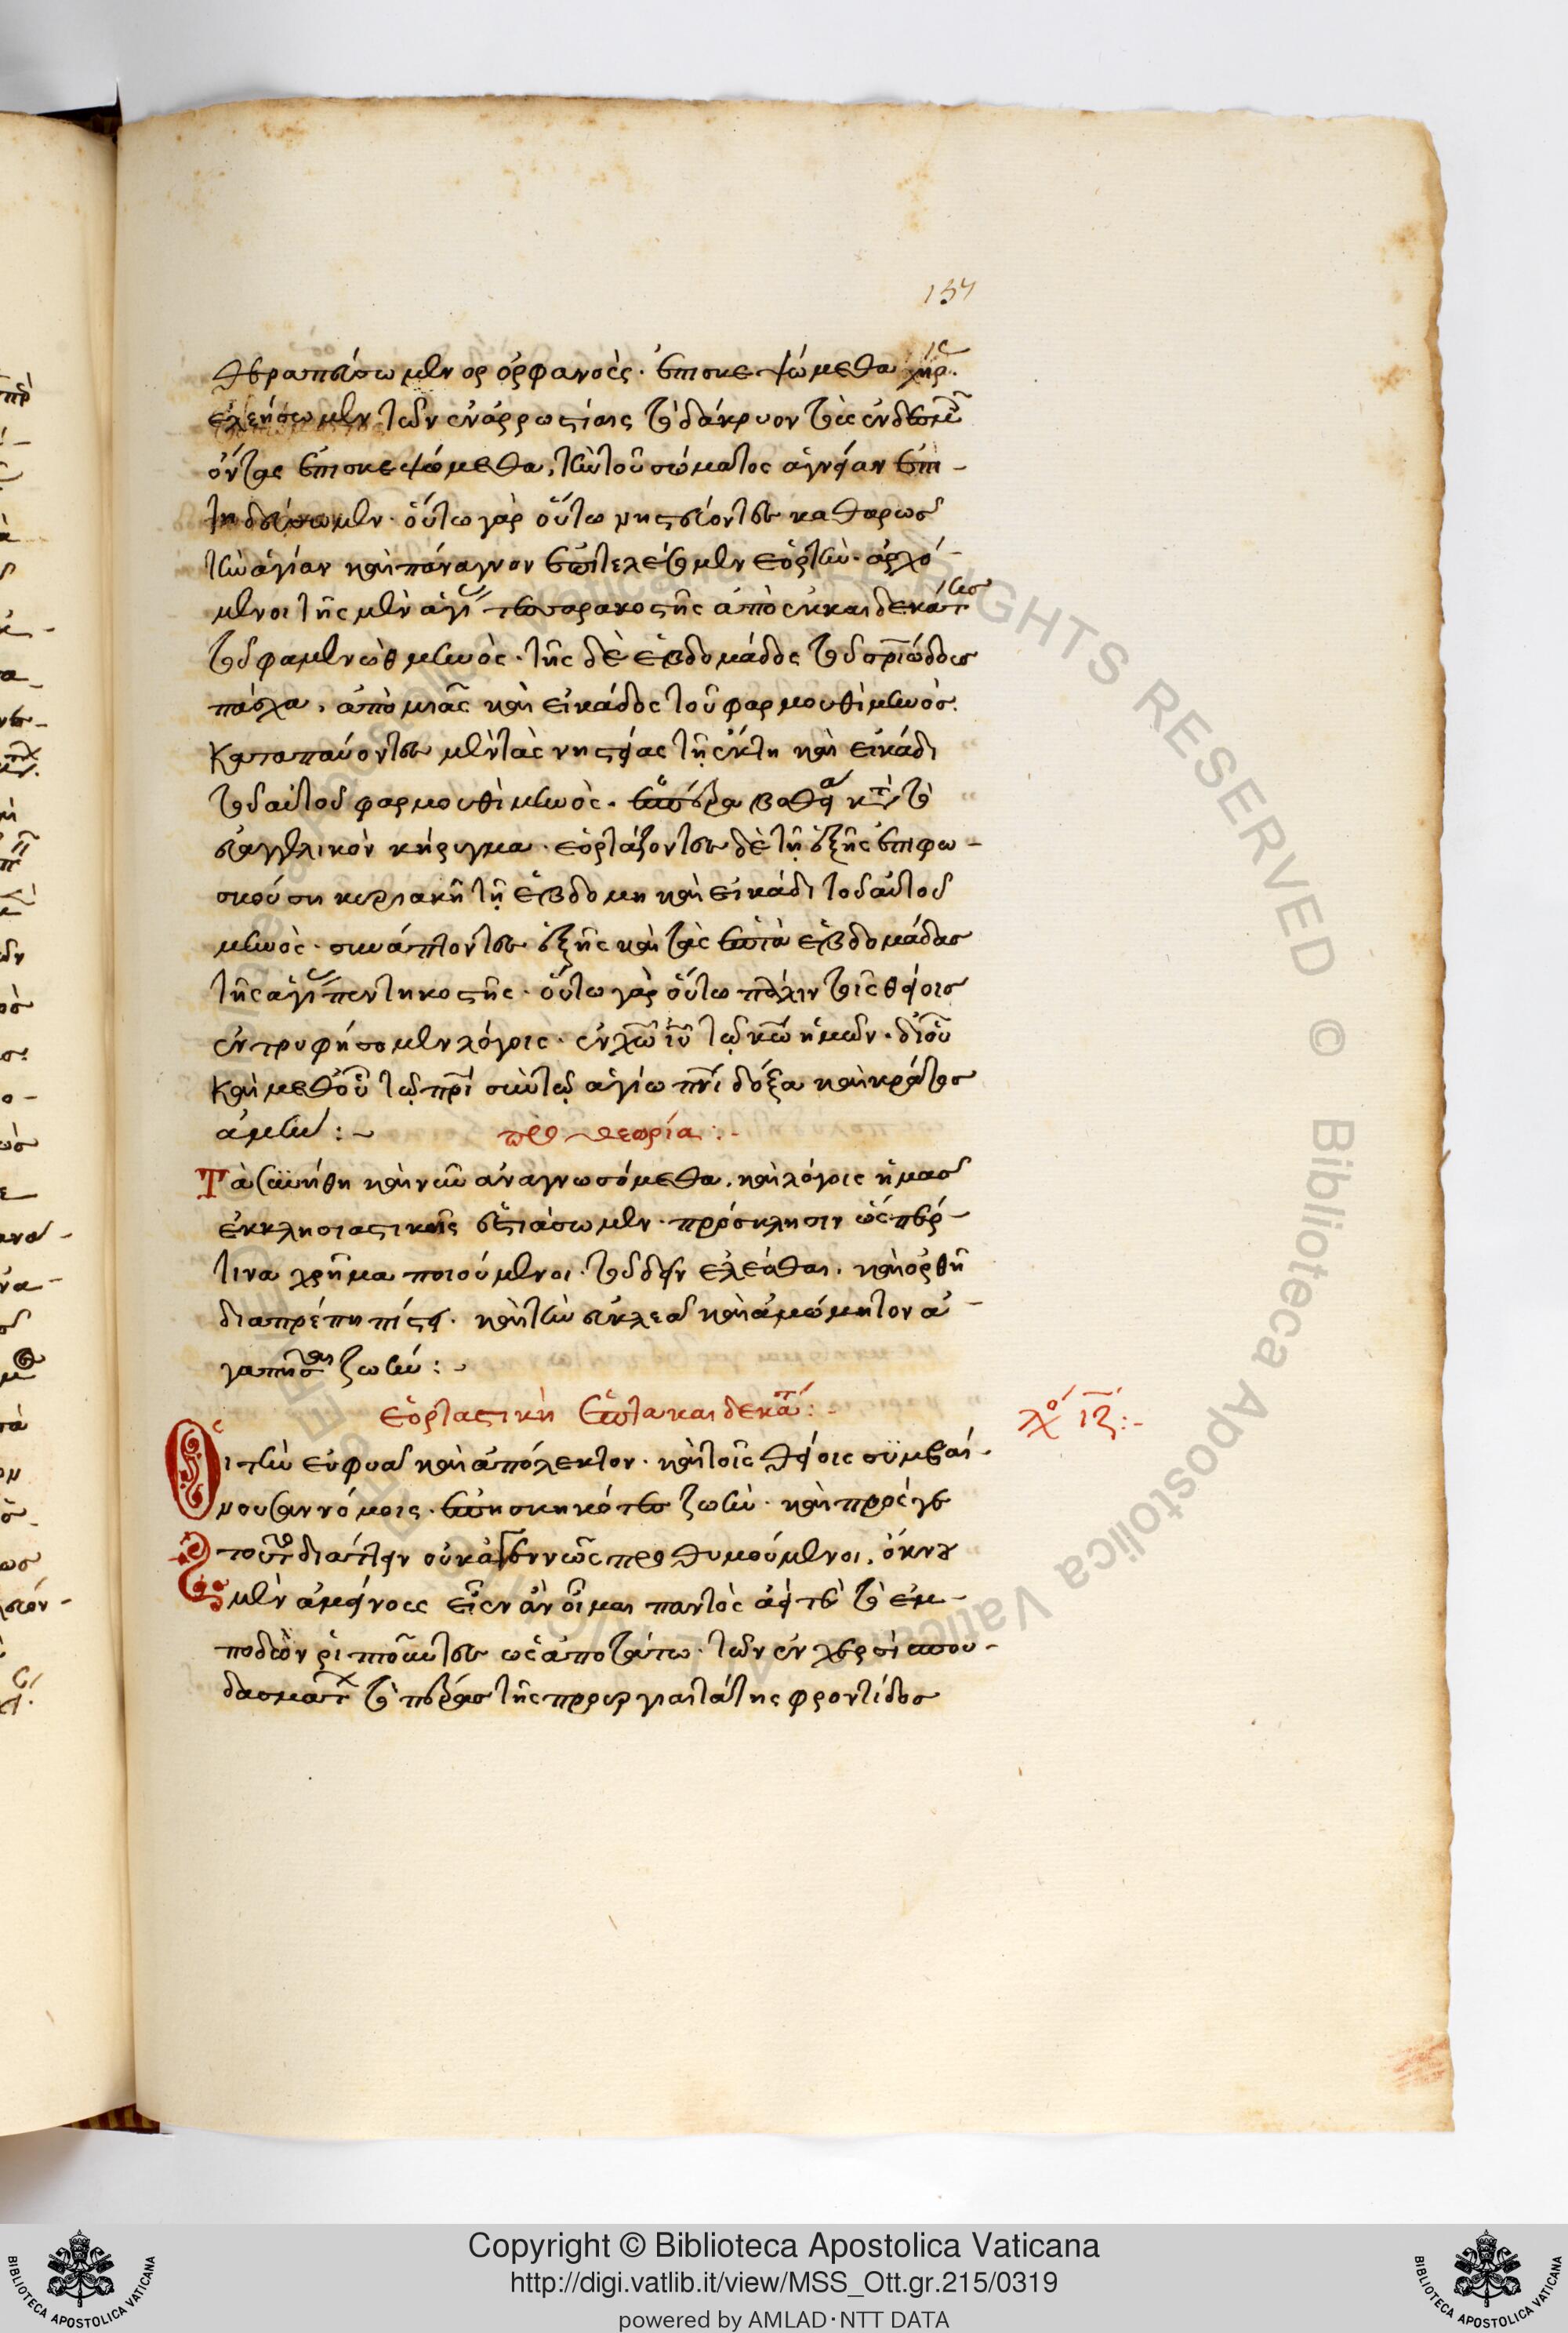 157
θεραπεύσωμεν ορ ὀρφανοὺς· ἐπισκεψώμεθα χήρ
ἐλεήσωμεν τῶν ἐν ἀρρωστίαις τὸ δάκρυον τοὺς ἐν δεσμ
ὄντας ἐπισκεψώμεθα, τὴν τοῦ σώματος ἁγνείαν ἐπι-
τηδεύσωμεν· οὕτω γὰρ οὕτω νηστεύοντες καθαρῶς
τὴν ἁγίαν καὶ πάναγνον ἐπιτελέσομεν ἑορτὴν· ἀρχό-
μενοι τῆς μὲν ἁγί τεσσαρακοστῆς ἀπὸ ἑκκαιδεκάτης
τοῦ φαμενὼθ μηνὸς· τῆς δὲ ἑβδομάδος τοῦ σωτηριώδους
πάσχα, ἀπὸ μιᾶς καὶ εἰκάδος τοῦ φαρμουθὶ μηνὸς.
καταπαύοντες μὲν τὰς νηστείας τῇ ἕκτῃ καὶ εἰκάδι
τοῦ αὐτοῦ φαρμουθὶ μηνὸς· ἑσπέρα βαθεί κτ τὸ
εὐαγγελικὸν κήρυγμα· ἑορτάζοντες δὲ τῇ ἑξῆς ἐπιφω-
σκούσῃ κυριακῇ τῇ ἑβδόμη καὶ εἰκάδι τοῦ αὐτοῦ
μηνὸς· συνάπτοντες ἑξῆς καὶ τὰς ἑπτὰ ἑβδομάδας
τῆς ἁγί πεντηκοστῆς· οὕτω γὰρ οὕτω πάλιν τοῖς θείοις
ἐντρυφήσομεν λόγοις· ἐν χω ιυ τῷ κω ἡμῶν· δι οὗ
καὶ μεθ οὗ τῷ πρι σὺν τῷ ἁγίω πνι δόξα καὶ κράτος
ἀμήν:~ προθεωρία:-
Τὰ συνήθη καὶ νῦν ἀναγνωσόμεθα, καὶ λόγοις ἡμᾶς
ἐκκλησιαστικοῖς ἑστιάσωμεν· πρόσκλησιν ὥσπερ
τινα χρῆμα ποιούμενοι· τοῦ δεῖν ἑλέσθαι, καὶ ὀρθῇ
διαπρέπη πίστει· καὶ τὴν εὐκλεᾶ καὶ ἀμώμητον ἀ-
γαπῆσαι ζωήν:~
ἑορταστικὴ ἑπτακαιδεκάτ:- λό ιζ:-
Οἱ τὴν εὐφυᾶ καὶ ἀπόλεκτον· καὶ τοῖς θείοις συμβαί-
νουσαν νόμοις· ἐπησκηκότες ζωὴν· καὶ πρός γε
τοῦτο διατελεῖν οὐκ ἀγεννῶς προθυμούμενοι, ὄκνου
μὲν ἀμείνους εἶεν ἂν οἶμαι παντὸς ἀεί τε τὸ ἐμ-
ποδὼν ῥιπτοῦντες ὡς ἀποτάτω· τῶν ἐν χερσὶ σπου-
δασμάτ τὸ πέρας τῆς προὐργιαιτάτης φροντίδος
Copyright © Biblioteca Apostolica Vaticana
http://digi.vatlib.it/view/MSS_Ott.gr.215/0319
powered by AMLAD·NTT DATA
BIBLIOTECA APOSTOLICA VATICANA
BIBLIOTECA APOSTOLICA VATICANA